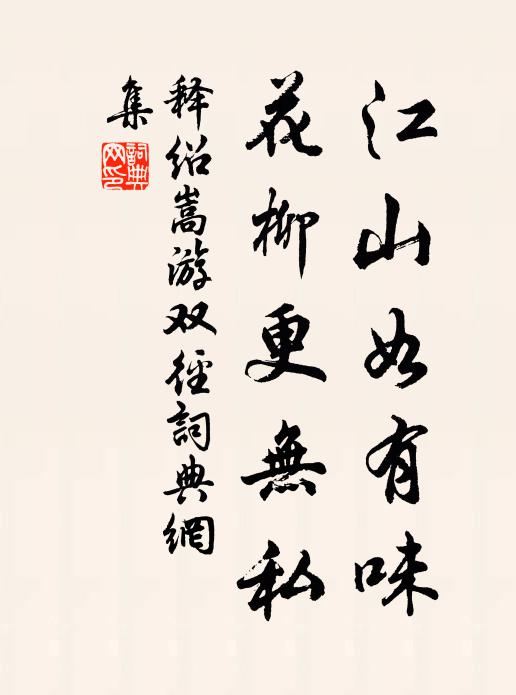 江山如有味
花柳更無私
释绍嵩游双徑詞典網
集
詞典网印